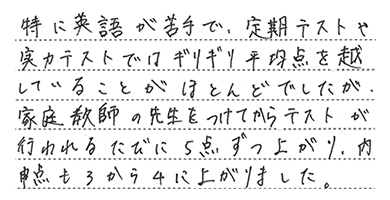 特に英語が苦手で、定期テストや
実力テストではギリギリ平均点を越
していることがほとんどでしたが、
家庭教師の先生をつけてからテストが
行われるたびに5点ずつ上がり、内
申点も3から4に上がりました。